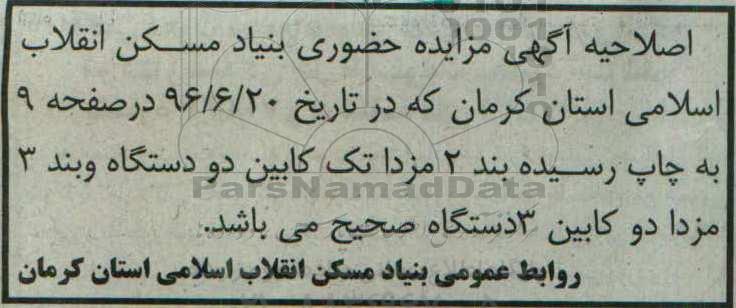 اصلاحیه آگهی مزایده حضوری بنیاد مسکن انقلاب
اسلامی استان کرمان که در تاریخ ۹۶/۶/۲۰ درصفحه ۹
به چاپ رسیده بند ۲ مزدا تک کابین دو دستگاه وبند ۳
مزدا دو کابین ۳دستگاه صحیح می باشد.
روابط عمومی بنیاد مسکن انقلاب اسلامی استان کرمان
ParsNamadData